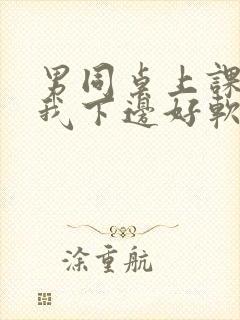 男同桌上課
我下邊好軟
涂重航